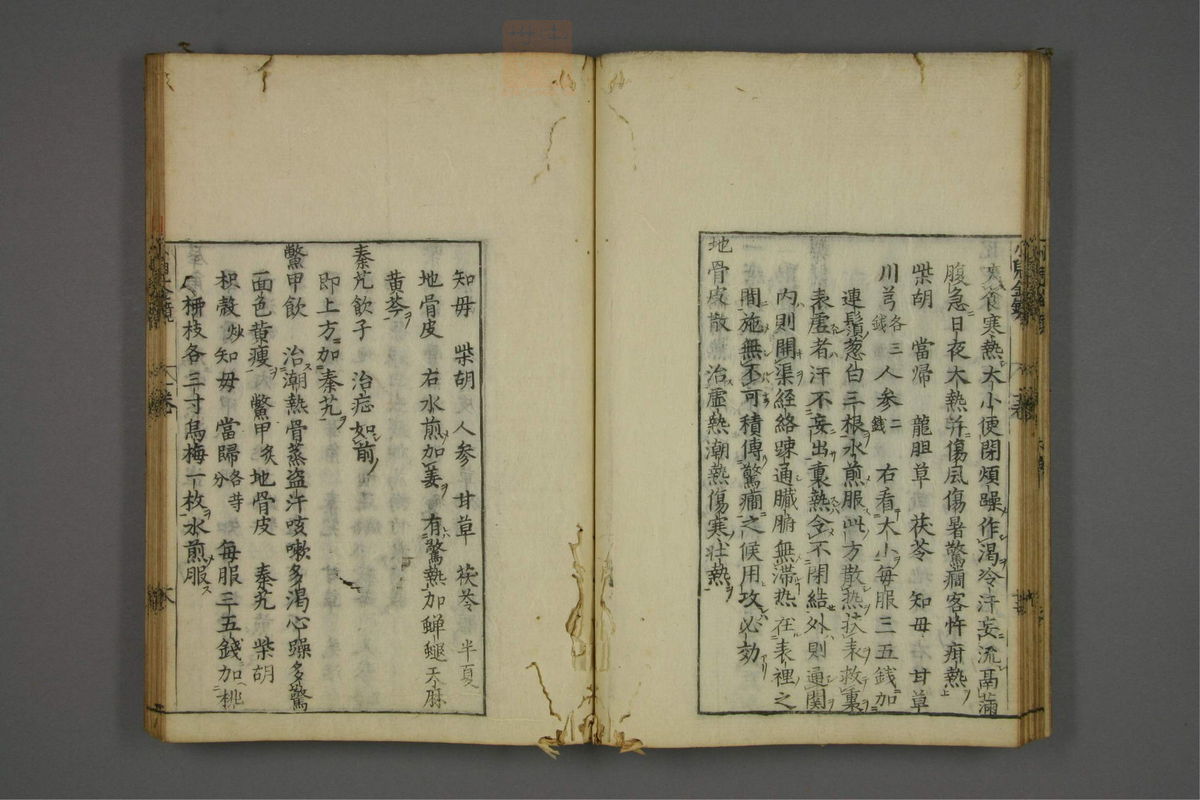 寒食寒熱大小便閉煩躁作渇冷汗妄流鬲滿
腹急日夜大熱并傷風傷暑驚癇客忤疳熱
柴胡 當帰 龍胆草 茯苓 知母 右 甘草
川芎各三錢 人参二錢 右看大小毎服三五錢加
連鬚葱白三根水煎服此方散熱扶表救裏
表虚者汗不妄出裏熱令不閉結外則通関
内則開渠経絡踈通臓腑無滞熱在表裡之
間施無不可積傳驚癇之候用攻必効
地骨皮散熱 治虚熱潮熱傷寒壮熱
知母 柴胡 人参 甘草 茯苓 半夏
地骨皮 右水煎加姜有驚熱加蝉蛻天麻
黄芩
秦艽飲子 治症如前
即上方加秦艽
鱉甲飲 治潮熱骨蒸盗汗咳嗽多渇心躁多驚
面色黄痩 鱉甲炙 地骨皮 秦艽 柴胡
枳殻炒 知母 當歸各等分 毎服三五錢加桃
柳枝各三寸烏梅一枚水煎服